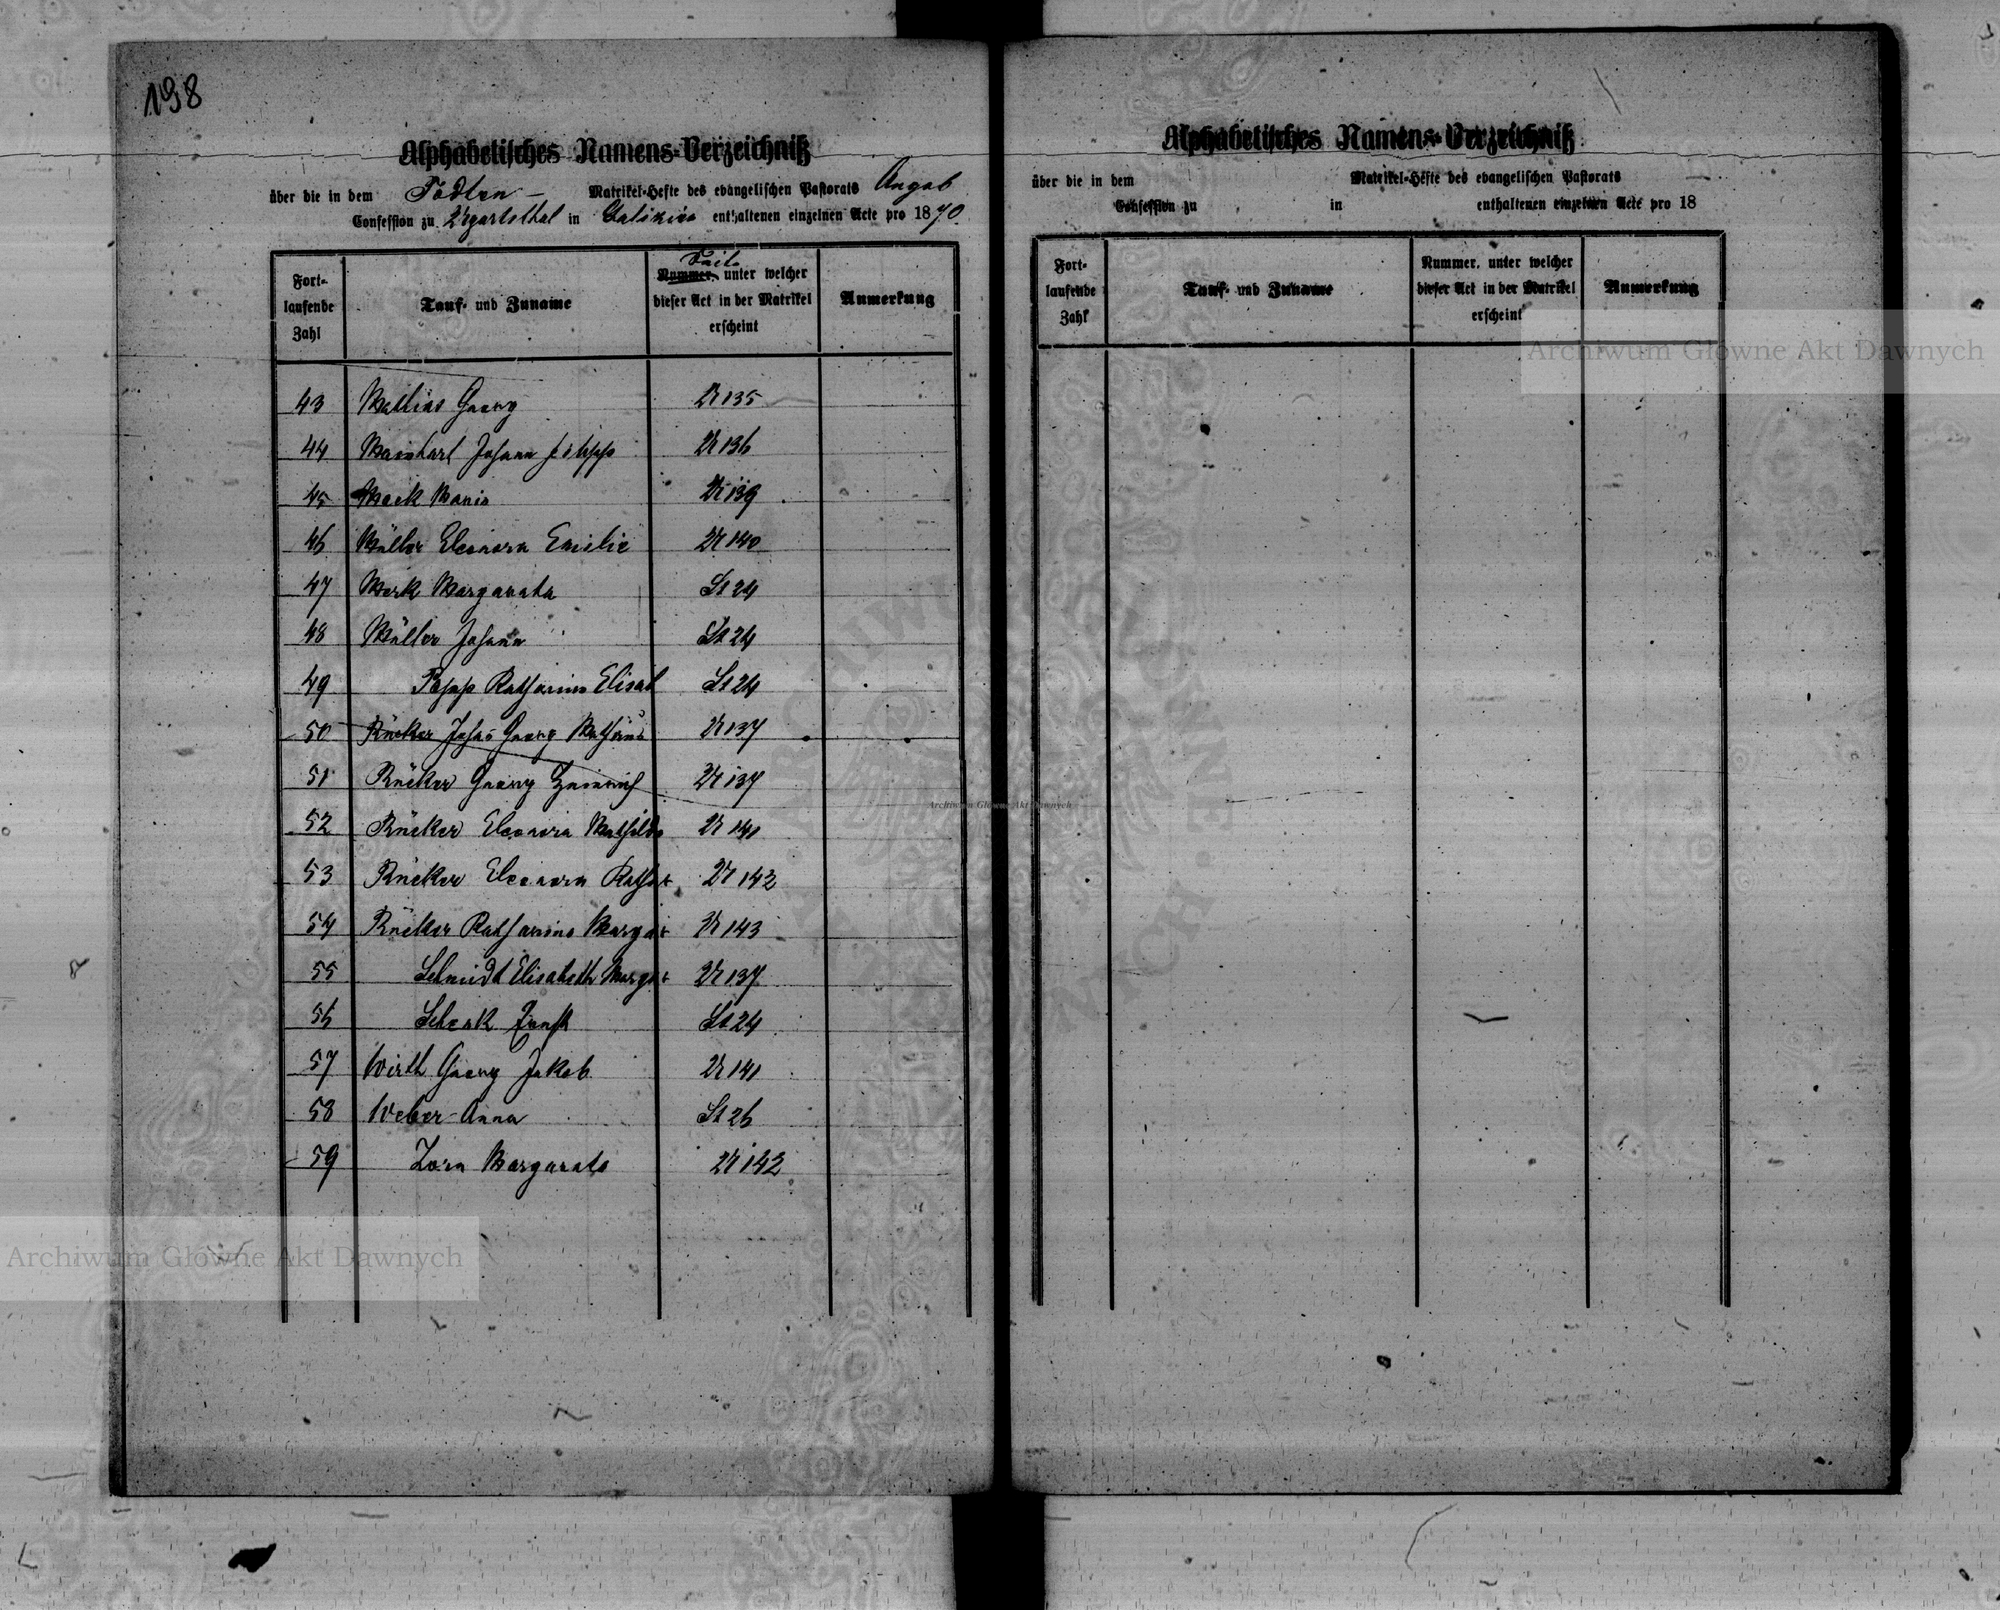 198
Alphabetisches Namens-Verzeichniß
über die in dem Todten- Matrikel-Hefte des evangelischen Pastorats Augsb
Confession zu Ugartsthal in Galizien enthaltenen einzelnen Acte pro 1870.
Fort-laufende Zahl
Tauf- und Zuname
Seite
Nummer, unter welcher dieser Act in der Matrikel erscheint
Anmerkung
43 Mathias Georg U 135
44 Johann Philipp U 136
45 Mack Maria U 139
46 Müller Eleonora Emilie U 140
47 Merk Margaretha St 24
48 Müller Johann St 24
49 Popp Katharina Elisab St 24
50 Rücker Johs Georg U 137
51 Rücker Georg Heinrich U 137
52 Rücker Eleonora Mathilde U 141
53 Rücker Eleonora Kathar U 142
54 Rücker Katharina Margar U 143
55 Schmidt Elisabeth Margar U 137
56 Schenk Ernst St 24
57 Wirth Georg Jakob U 141
58 Weber Anna St 26
59 Zorn Margareta U 142
Alphabetisches Namens-Verzeichniß
über die in dem Matrikel-Hefte des evangelischen Pastorats
Confession zu in enthaltenen einzelnen Acte pro 18
Fort-laufende Zahl
Tauf- und Zuname
Nummer, unter welcher dieser Act in der Matrikel erscheint
Anmerkung
Archiwum Główne Akt Dawnych
Archiwum Główne Akt Dawnych
Archiwum Główne Akt Dawnych